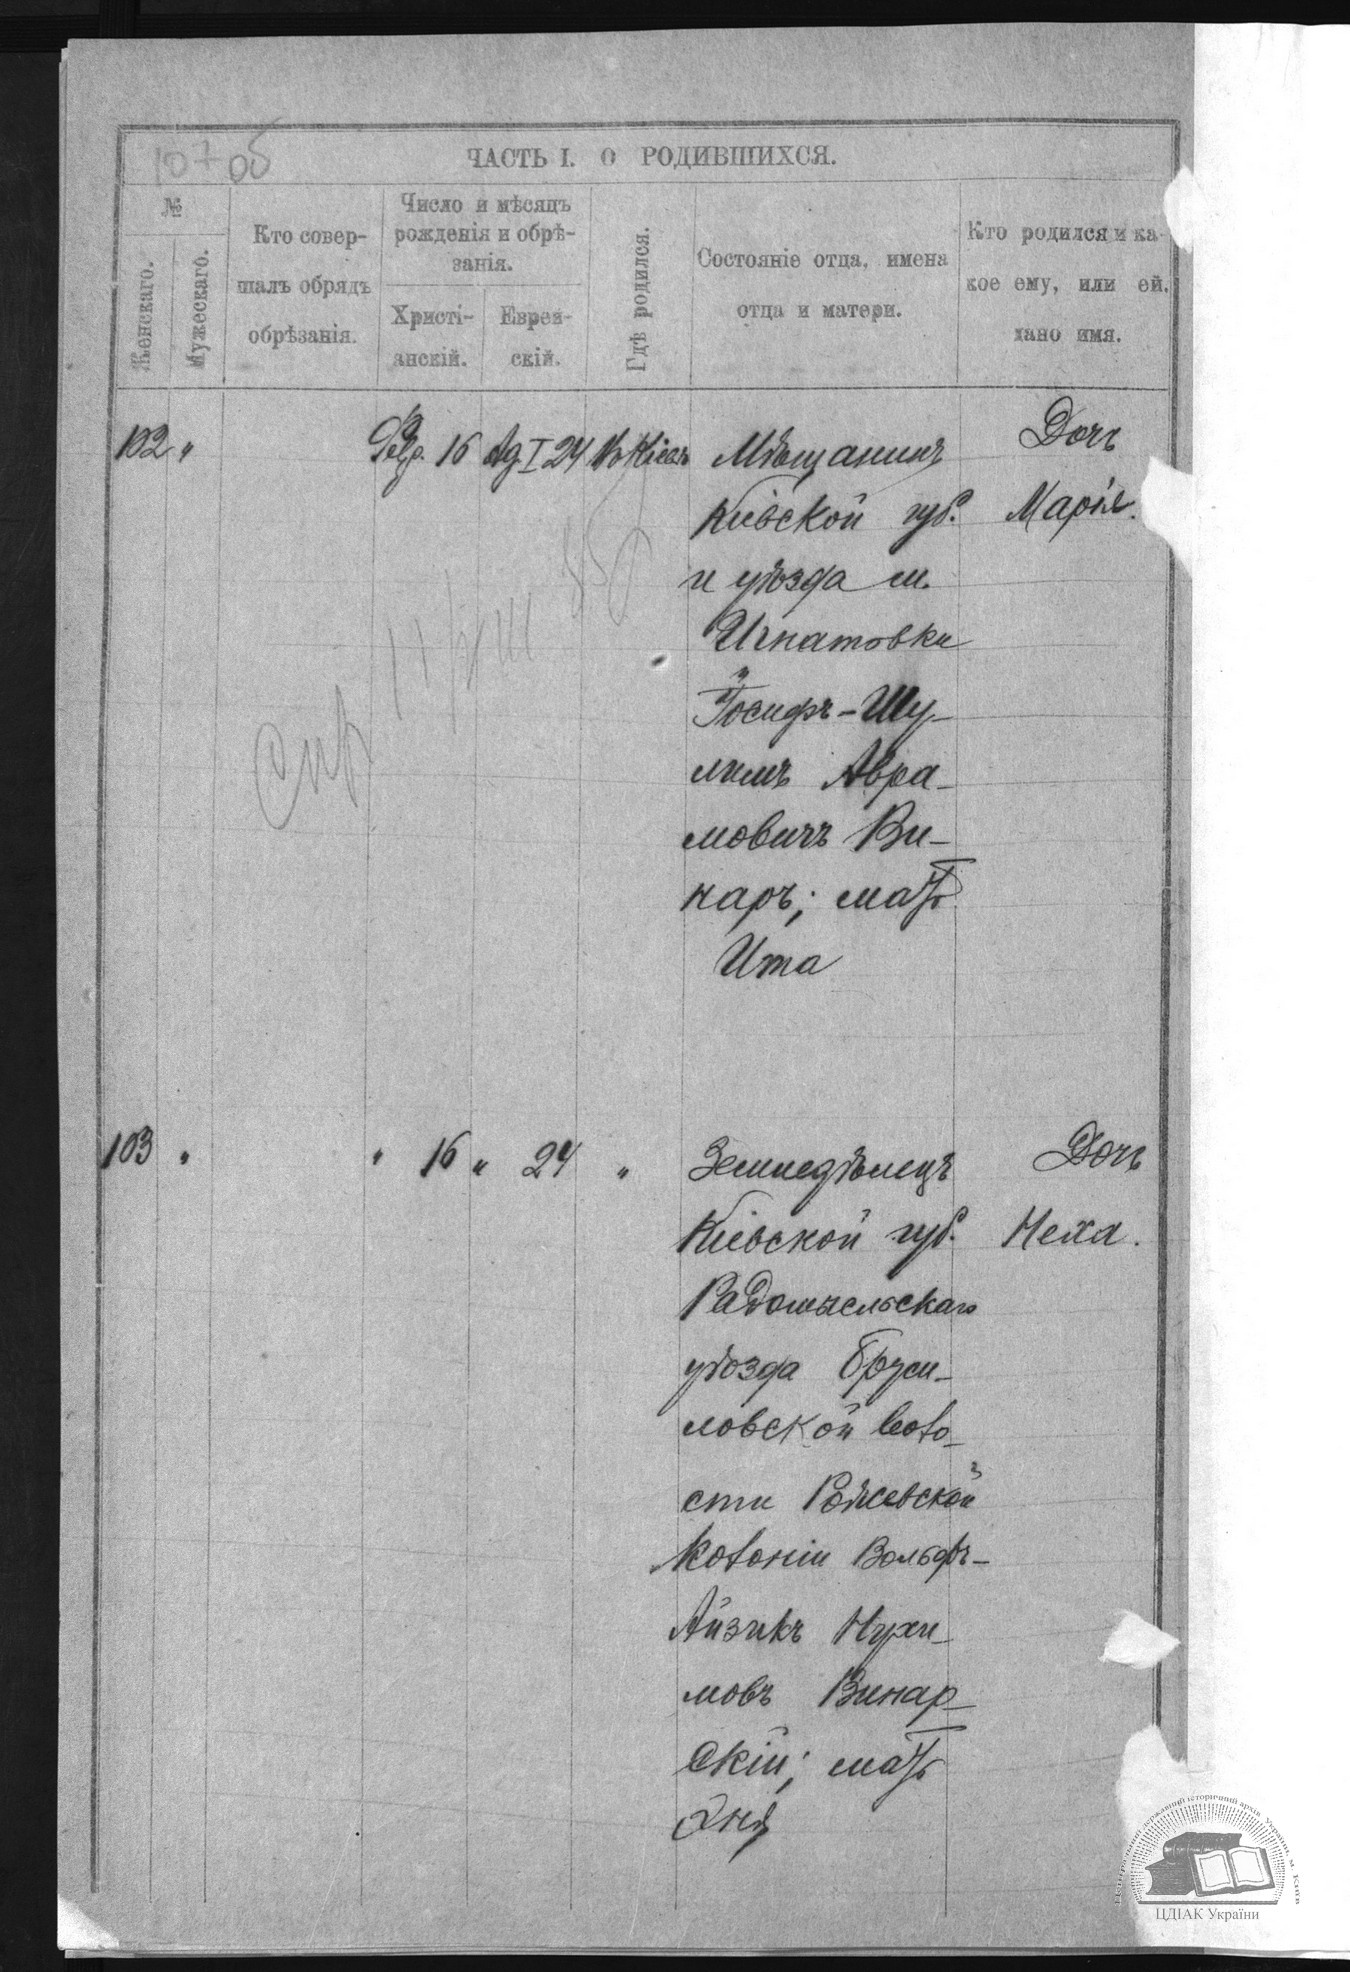 107 об
ЧАСТЬ I. О РОДИВШИХСЯ.
№
Женскаго.
Мужескаго.
Кто совер-
шалъ обрядъ
обрѣзанія.
Число и мѣсяцъ
рожденія и обрѣ-
занія.
Христі-
анскій.
Еврей-
скій.
Гдѣ родился.
Состояніе отца, имена
отца и матери.
Кто родился и ка-
кое ему, или ей,
дано имя.
102 " Февр. 16 Ад. I 24 Въ Кіевѣ
Мѣщанинъ
Кіевской губ.
и уѣзда м.
Игнатовки
Іосифъ-Шу-
лимъ Авра-
мовичъ Ви-
наръ; мать
Ита
Дочь
Марія.
спр
103 " " 16 " 24 "
Земледѣлецъ
Кіевской губ.
Радомысльскаго
уѣзда Бруси-
ловской воло-
сти Рожевской
колоніи Вольфъ-
Айзикъ Нухи-
мовъ Винар-
скій; мать
Хня
Дочь
Неха.
Центральний державний історичний архів України, м. Київ
ЦДІАК України